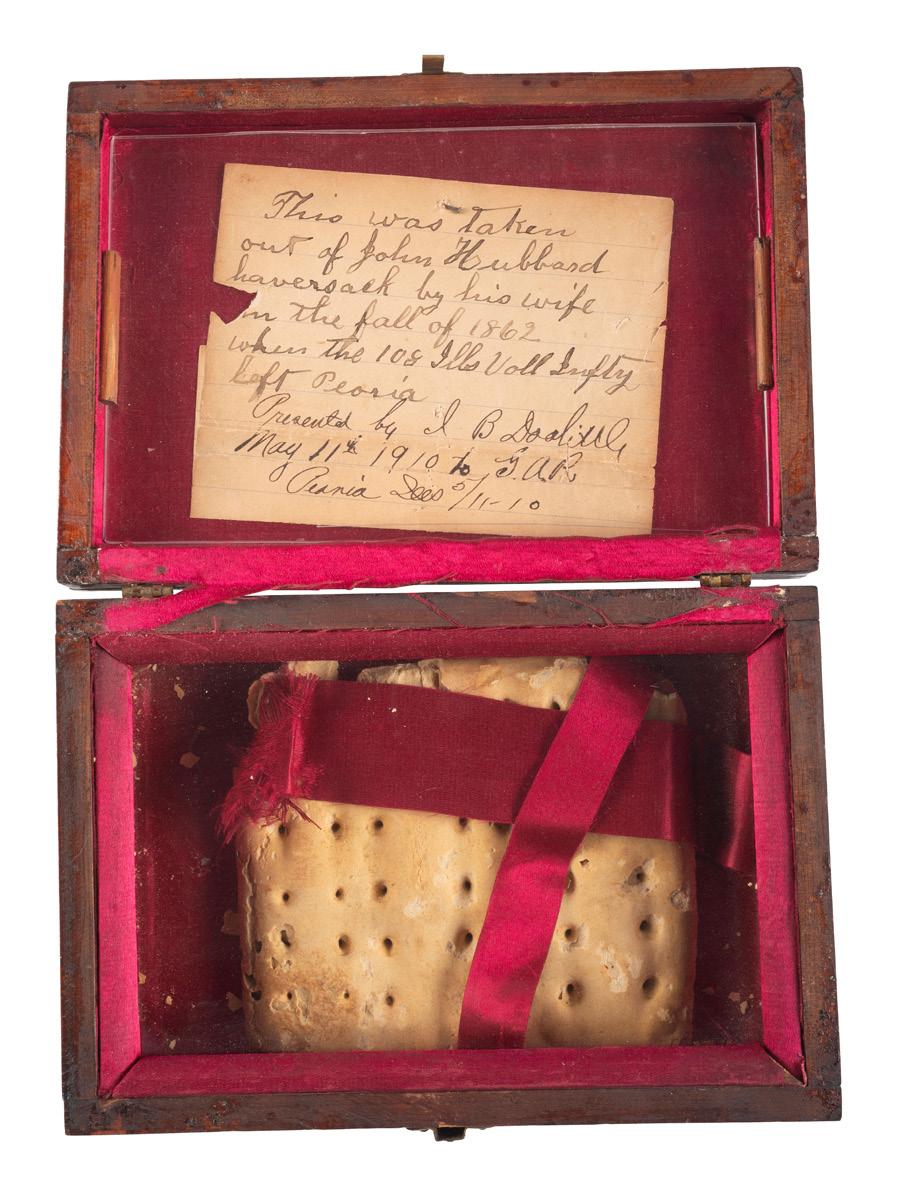 This was taken
out of John Hubbard
haversack by his wife
in the fall of 1862
when the 108 Ills Voll Infty
left Peoria
Presented by I B Doolittle
May 11th 1910 to G.A.R
Peoria Ills 5/11-10